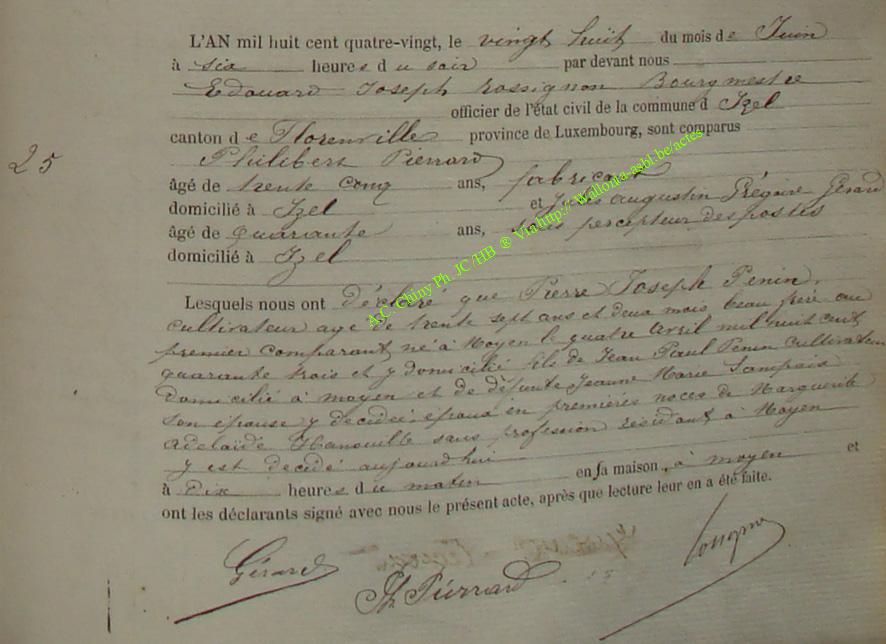 L'AN mil huit cent quatre-vingt, le vingt huit du mois de Juin
à six heures du soir par devant nous
Edouard Joseph Rossignon Bourgmestre
officier de l'état civil de la commune d Izel
canton de Florenville province de Luxembourg, sont comparus
Philibert Pierrard
25
âgé de trente cinq ans, fabricant
domicilié à Izel et Jules augustin Grégoire Gérard
âgé de quarante ans, sous percepteur des postes
domicilié à Izel
A.C. Chiny Ph. JC/HB ® Via http://Wallonia-asbl.be/actes
Lesquels nous ont déclaré que Pierre Joseph Penin,
cultivateur agé de trente sept ans et deux mois, beau frère au
premier comparant né à Moyen le quatre avril mil huit cent
quarante trois et y domicilié fils de Jean Paul Penin cultivateur
domicilié à moyen et de défunte Jeanne Marie
son épouse y décidée, époux en premières noces de Marguerite
Adelaïde sans profession résidant à Moyen
y est décidé aujourd'hui
à Dix heures du matin en sa maison, à moyen et
ont les déclarants signé avec nous le présent acte, après que lecture leur en a été faite.
Gérard
Ph Pierrard